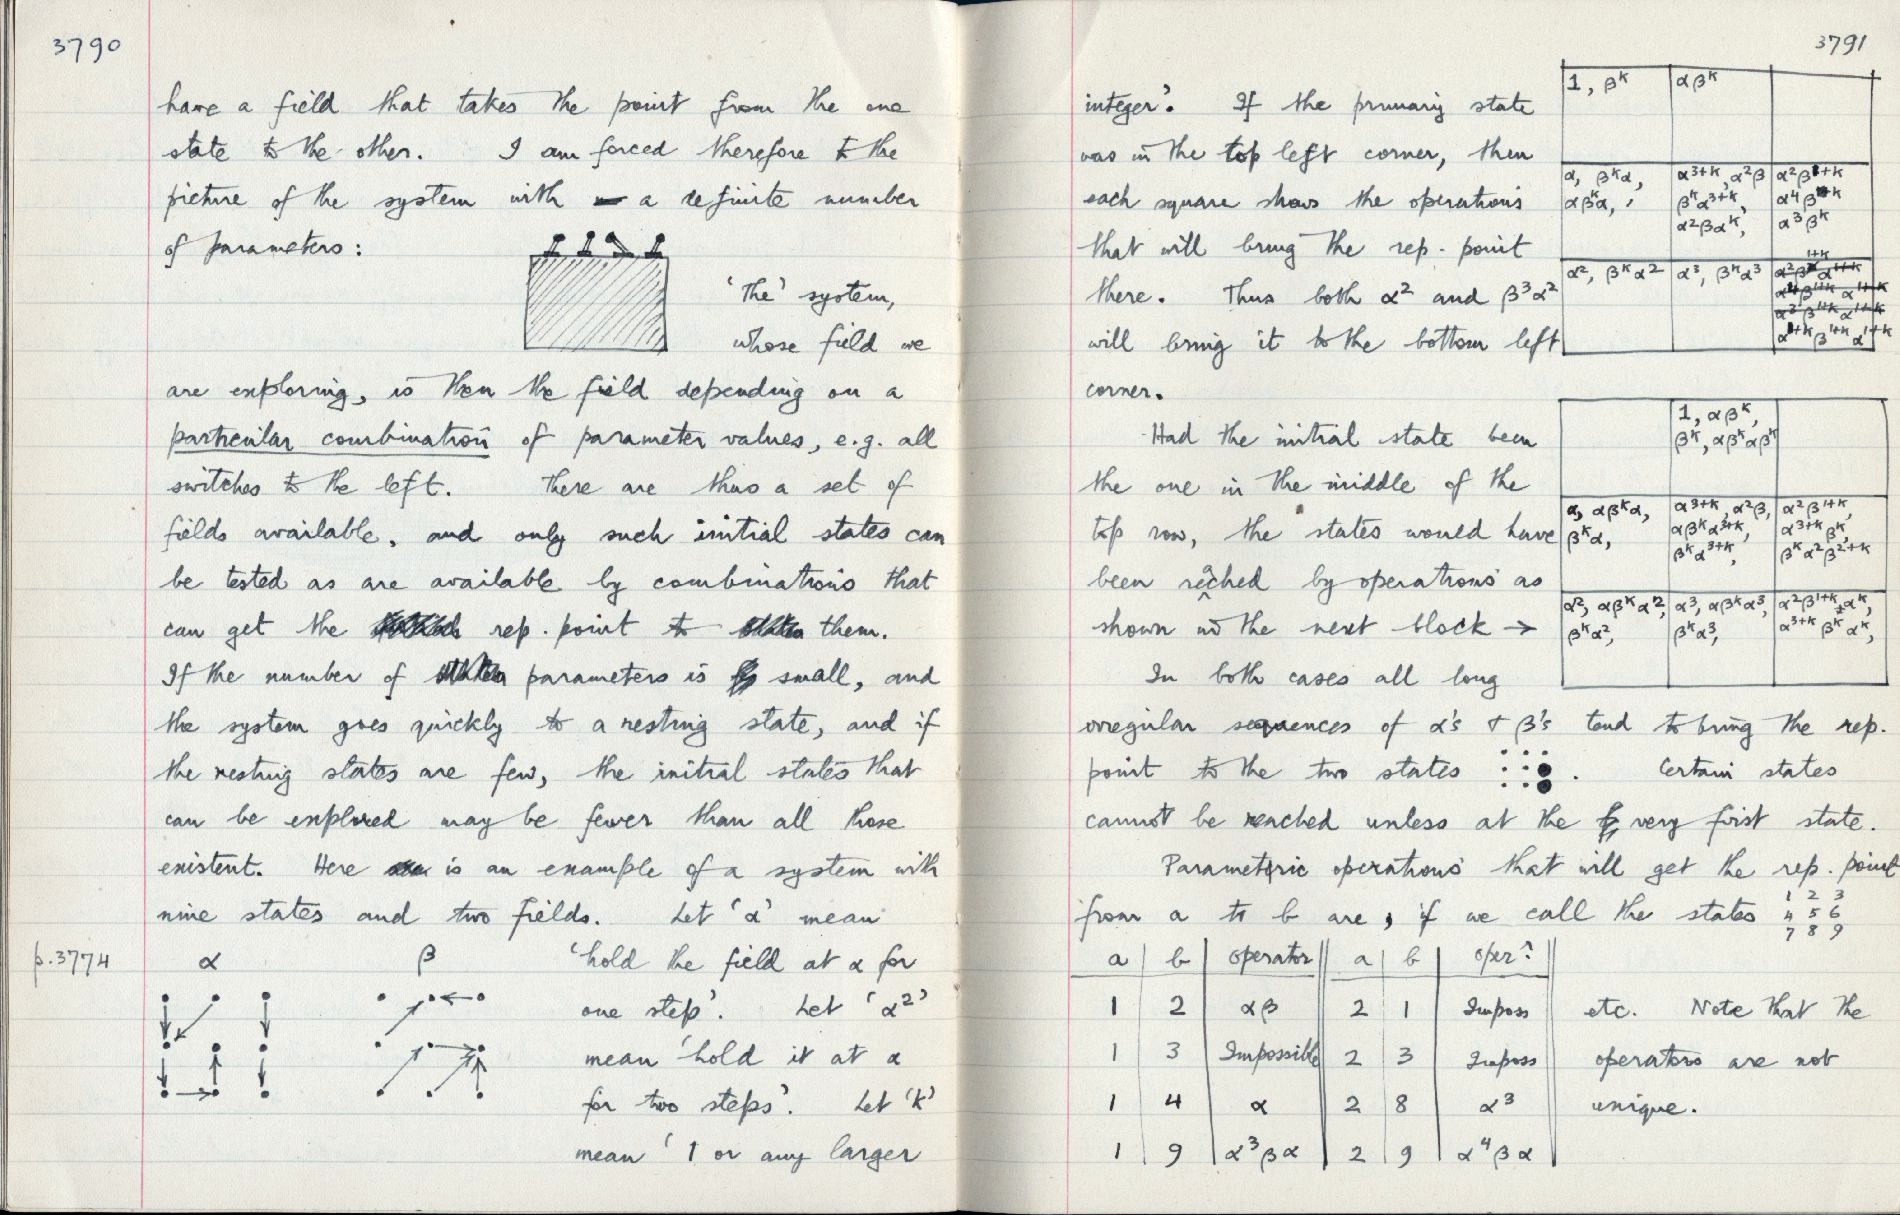 3790
have a field that takes the point from the one
state to the other. I am forced therefore to the
picture of the system with a definite number
of parameters:
'the' system,
whose field we
are exploring, is then the field depending on a
particular combination of parameter values, e.g. all
switches to the left. There are thus a set of
fields available, and only such initial states can
be tested as are available by combinations that
can get the rep. point to them.
If the number of parameters is small, and
the system goes quickly to a resting state, and if
the resting states are few, the initial states that
can be explored may be fewer than all those
existent. Here is an example of a system with
nine states and two fields. Let 'α' mean
p.3774
α β
'hold the field at α for
one step'. Let 'α²'
mean 'hold it at α
for two steps'. Let 'k'
mean '1 or any larger
3791
integer'. If the primary state
was in the top left corner, then
each square shows the operations
that will bring the rep. point
there. Thus both α² and β³α²
will bring it to the bottom left
corner.
1, βᵏ αβᵏ
α, βᵏα, α³⁺ᵏ, α²β α²β¹⁺ᵏ
αβᵏα, βᵏα³⁺ᵏ, α⁴β¹⁺ᵏ
α²βαᵏ, α³βᵏ
α², βᵏα² α³, βᵏα³
Had the initial state been
the one in the middle of the
top row, the states would have
been reached by operations as
shown in the next block →
1, αβᵏ,
βᵏ, αβᵏαβᵏ
α, αβᵏα, α³⁺ᵏ, α²β, α²β¹⁺ᵏ,
βᵏα, αβᵏα³⁺ᵏ, α³⁺ᵏβᵏ,
βᵏα³⁺ᵏ, βᵏα²β²⁺ᵏ
α², αβᵏα², α³, αβᵏα³, α²β¹⁺ᵏαᵏ,
βᵏα², βᵏα³, α³⁺ᵏβᵏαᵏ,
In both cases all long
irregular sequences of α's & β's tend to bring the rep.
point to the two states . Certain states
cannot be reached unless at the very first state.
Parametric operations that will get the rep. point
from a to b are, if we call the states
1 2 3
4 5 6
7 8 9
a b operator a b oper?
1 2 αβ 2 1 Imposs
1 3 Impossible 2 3 Imposs
1 4 α 2 8 α³
1 9 α³βα 2 9 α⁴βα
etc. Note that the
operators are not
unique.